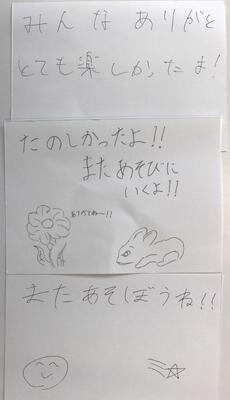 みんなありがと
とても楽しかったよ!
たのしかったよ!!
またあそびに
いくよ!!
ありがとね〜!!
またあそぼうね!!